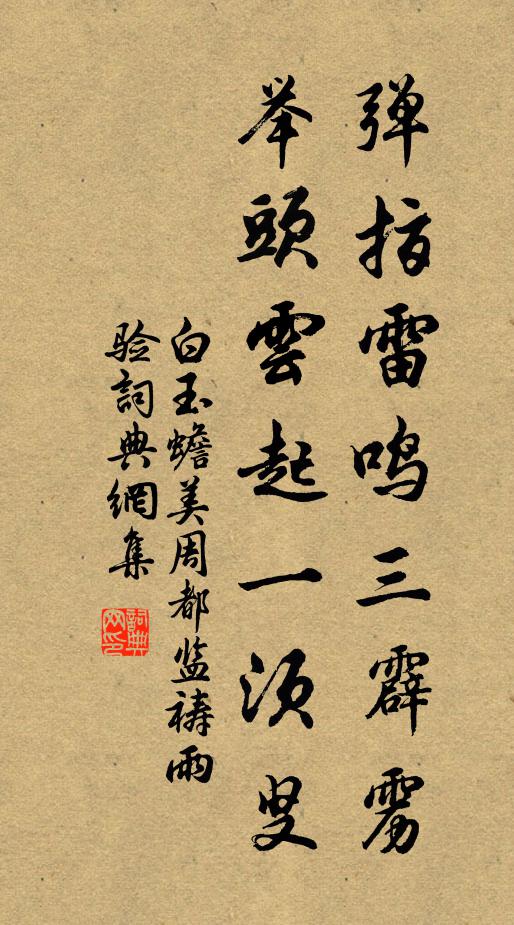 弹指雷鸣三霹雳
举頭雲起一须叟
白玉蟾美周都监祷雨
验詞典網集
詞典
网印